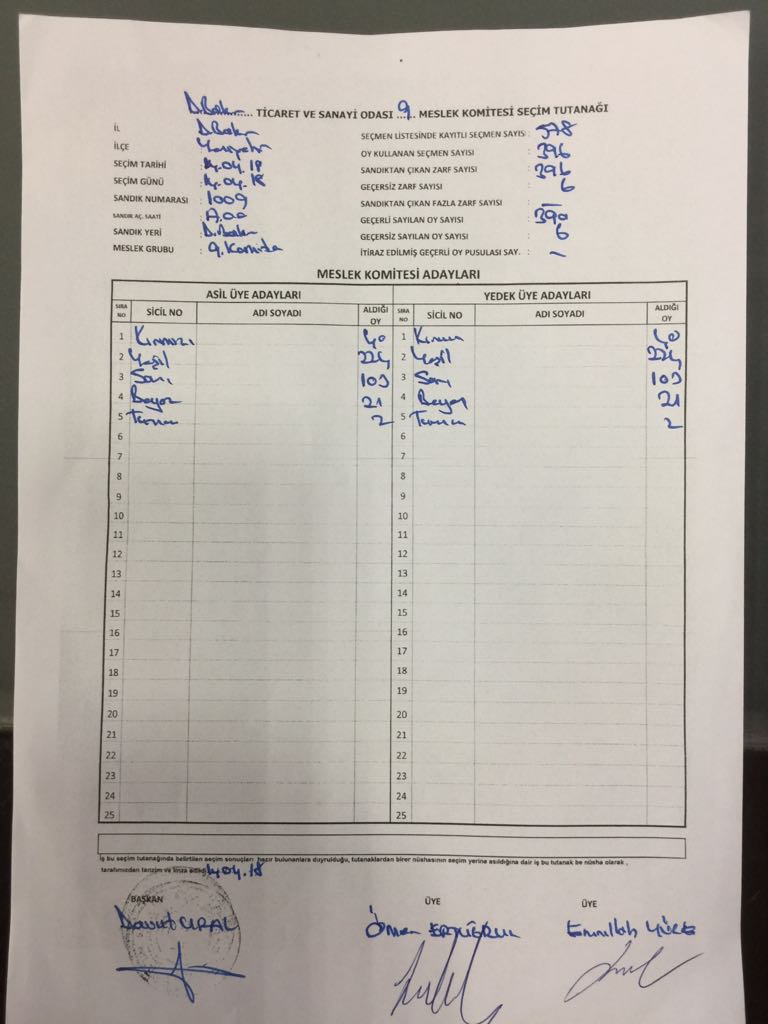 D.Bakır..... TİCARET VE SANAYİ ODASI ..9... MESLEK KOMİTESİ SEÇİM TUTANAĞI
İL : D.Bakır
İLÇE : Yenişehir
SEÇİM TARİHİ : 14.04.18
SEÇİM GÜNÜ : 14.04.18
SANDIK NUMARASI : 1009
SANDIK AÇ. SAATİ :
SANDIK YERİ : D.Bakır
MESLEK GRUBU : 9. Komite
SEÇMEN LİSTESİNDE KAYITLI SEÇMEN SAYISI : 578
OY KULLANAN SEÇMEN SAYISI : 396
SANDIKTAN ÇIKAN ZARF SAYISI : 396
GEÇERSİZ ZARF SAYISI : 6
SANDIKTAN ÇIKAN FAZLA ZARF SAYISI : —
GEÇERLİ SAYILAN OY SAYISI : 390
GEÇERSİZ SAYILAN OY SAYISI : 6
İTİRAZ EDİLMİŞ GEÇERLİ OY PUSULASI SAY. : -
MESLEK KOMİTESİ ADAYLARI
ASİL ÜYE ADAYLARI YEDEK ÜYE ADAYLARI
SIRA NO SİCİL NO ADI SOYADI ALDIĞI OY SIRA NO SİCİL NO ADI SOYADI ALDIĞI OY
1 Kırmızı 40 1 Kırmızı 40
2 Yeşil 224 2 Yeşil 224
3 Sarı 103 3 Sarı 103
4 Beyaz 21 4 Beyaz 21
5 Turuncu 2 5 Turuncu 2
6 6
7 7
8 8
9 9
10 10
11 11
12 12
13 13
14 14
15 15
16 16
17 17
18 18
19 19
20 20
21 21
22 22
23 23
24 24
25 25
İş bu seçim tutanağında belirtilen seçim sonuçları hazır bulunanlara duyrulduğu, tutanaklardan birer nüshasının seçim yerine asıldığına dair iş bu tutanak be nüsha olarak ,
tarafımızdan tanzim ve imza edildi 14.04.18
BAŞKAN ÜYE ÜYE
Davut URAL Ömer ERTUĞRUL Emrullah